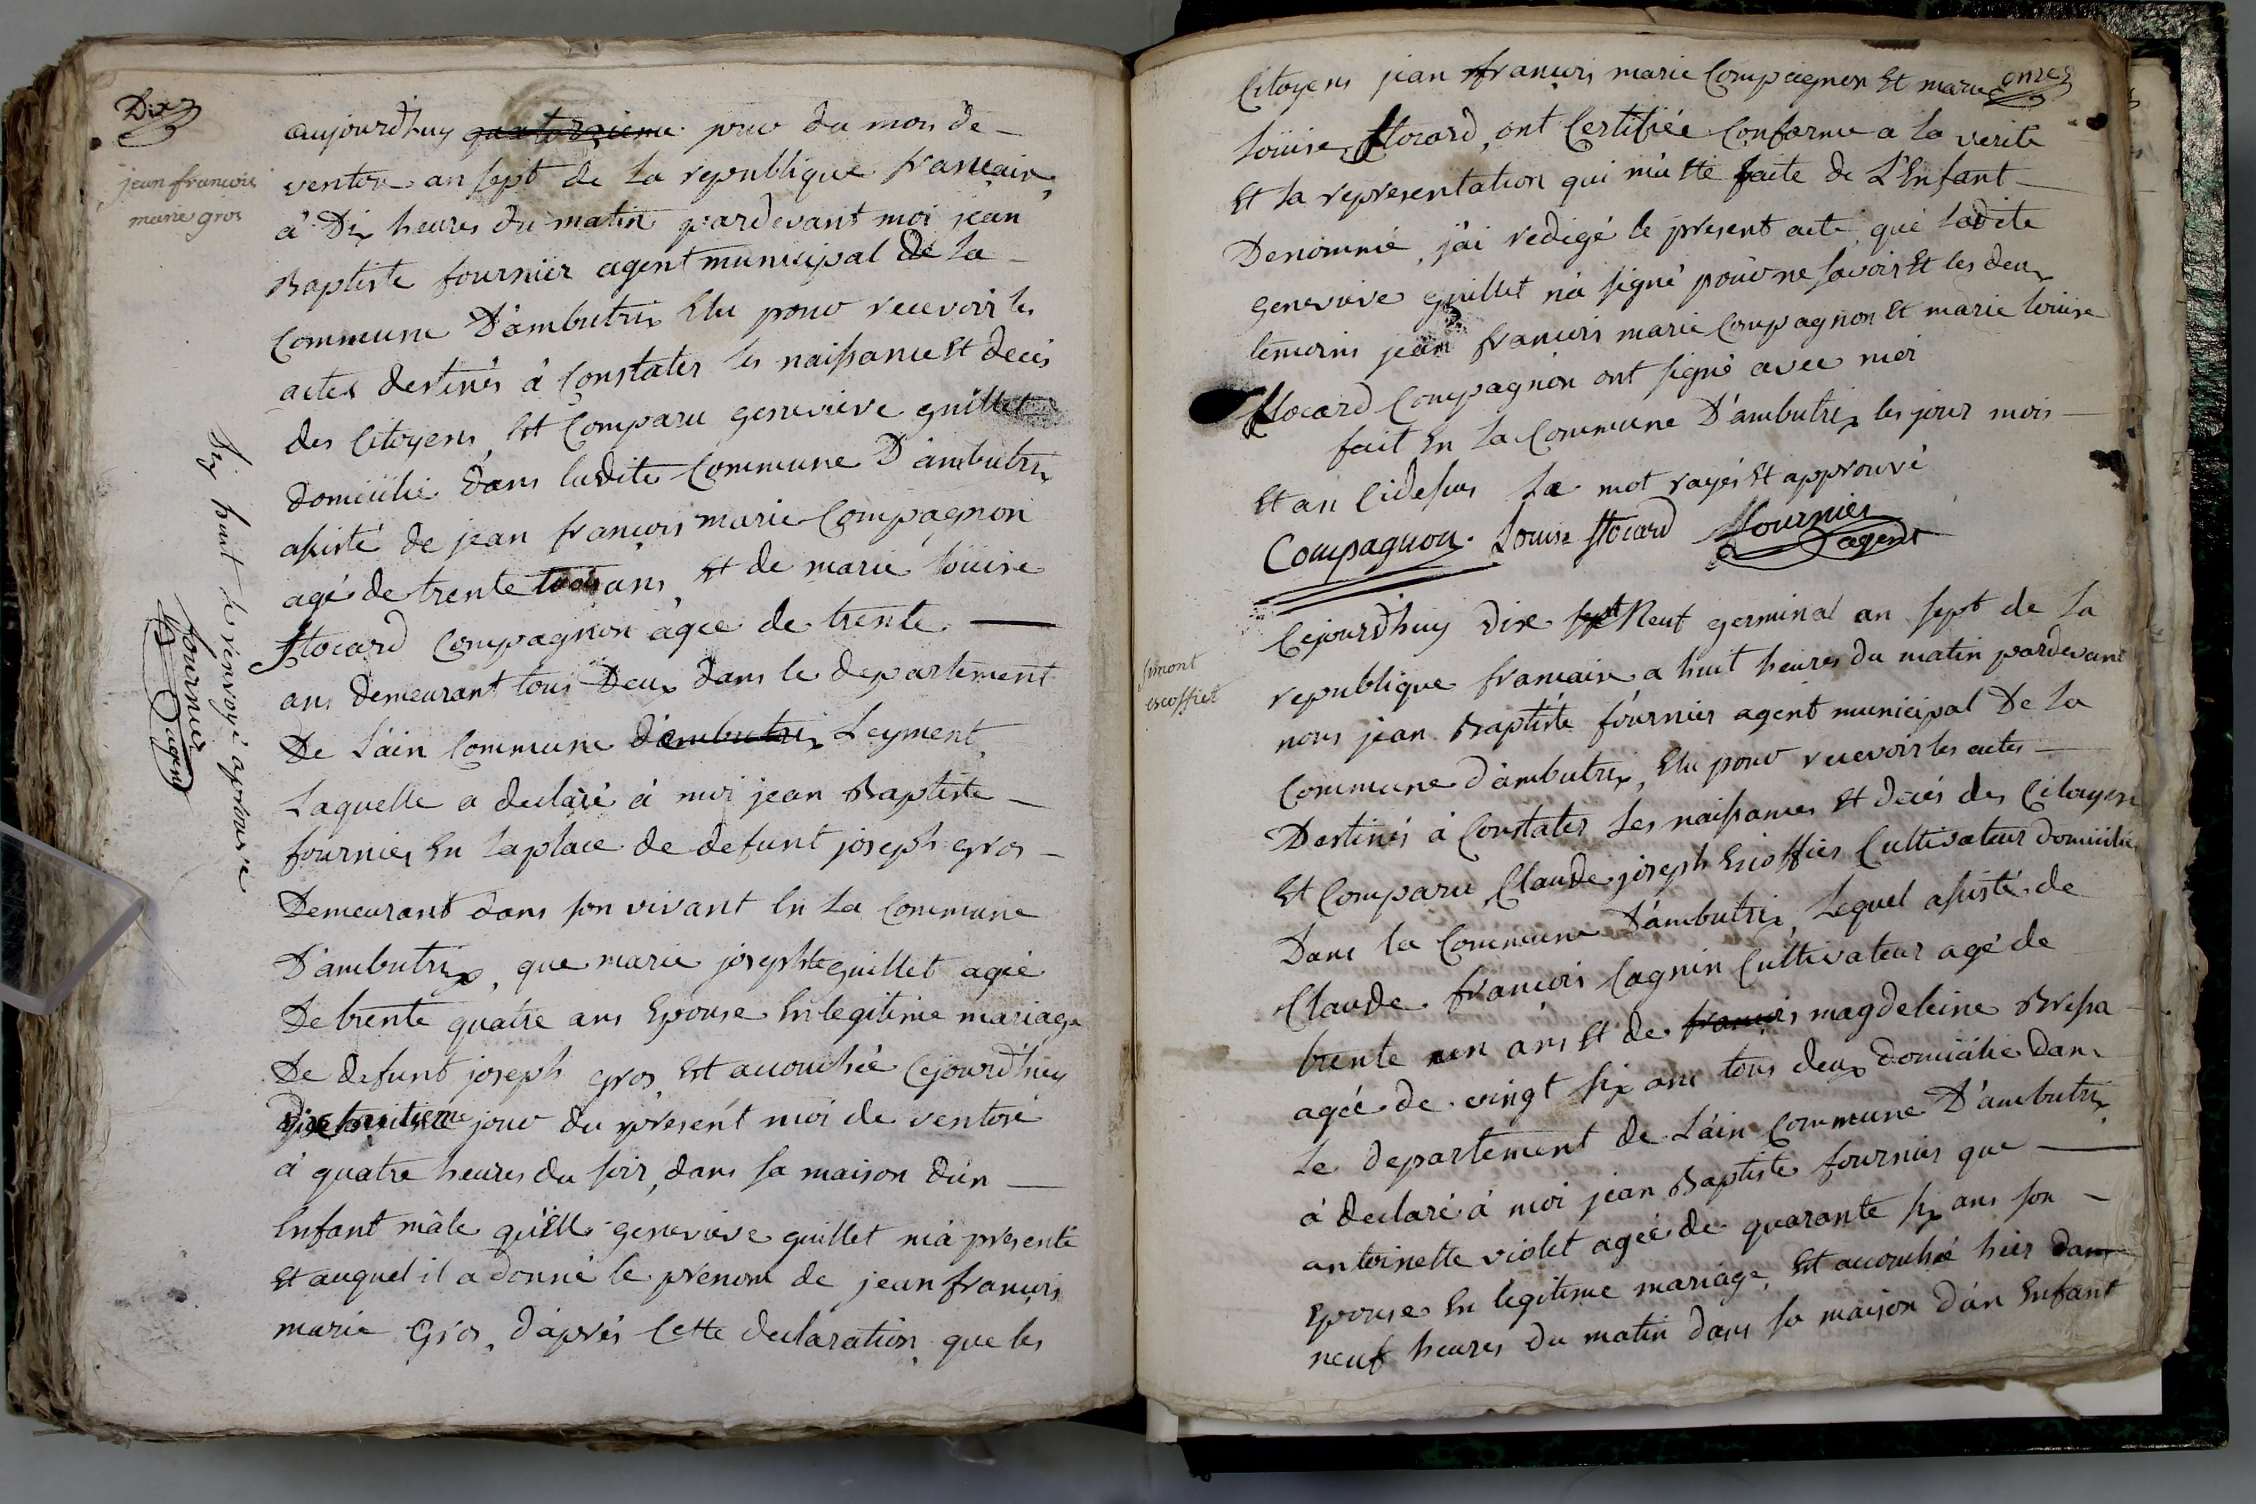 Dix
jean francois
marie gros
aujourdhuy quatorzieme jour du mois de
ventose an sept de la republique francaise,
à Dix heures du matin pardevant moi jean
Baptiste fournier agent municipal de la
Commune D'ambutrix Elu pour recevoir les
actes destinés à Constater les naissance et decès
des Citoyens, est Comparu genevieve guillet
domicilié dans ladite Commune D'ambutrix
assisté de jean francois marie Compagnon
agé de trente trois ans, et de marie louise
flocard Compagnon agée de trente
ans demeurant tous Deux dans le departement
De l'ain Commune d'ambutrix Leyment,
Laquelle a declaré à moi jean Baptiste
fournier En laplace de defunt joseph gros
Demeurant dans son vivant En la Commune
D'ambutrix, que marie josephte guillet agée
De trente quatre ans Epouse En legitime mariage
De defunt joseph gros Est accouchée Cejourd'huy
dix huitieme jour du present moi de ventose
à quatre heures du soir, dans sa maison d'un
Enfant mâle qu'Elle genevieve guillet m'a presenté
Et auquel il a donné le prenom de jean francois
marie Gros, d'après Cette declaration que les
Dix huit le renvoyé aprouvée
fournier
agent
onze
Citoyens jean francois marie Compagnon Et marie
Louise flocard, ont Certifiée Conforme a la verité
Et la representation qui m'a eté faite de L'Enfant
Denommé, j'ai redigé le present acte, que ladite
genevieve guillet n'a signé pour ne savoir Et les deux
temoins jean francois marie Compagnon Et marie louise
flocard Compagnon ont signé avec moi
fait En la Commune D'ambutrix les jour mois
Et an Cidessus Le mot rayés Et approuvé
Compagnon. Louise flocard fournier
agent
Simont
escoffier
Cejourd'huy dix sept Neuf germinal an sept de la
republique francaise a huit heures du matin pardevant
nous jean Baptiste fournier agent municipal De la
Commune d'ambutrix, Elu pour recevoir les actes
Destinés à Constater Les naissances Et decès des Citoyens
Est Comparu Claude joseph Escoffier Cultivateur domicilié
Dans la Commune D'ambutrix, Lequel assisté de
Claude francois Cagnin Cultivateur agé de
trente un ans Et de francois magdeleine Bressa
agée de vingt six ans tous deux domicilié dans
Le departement de L'ain Commune D'ambutrix,
à declaré à moi jean Baptiste fournier que
antoinette violet agée de quarante six ans son
Epouse En legitime mariage, Est accouchée hier dans
neuf heures du matin dans sa maison d'un Enfant